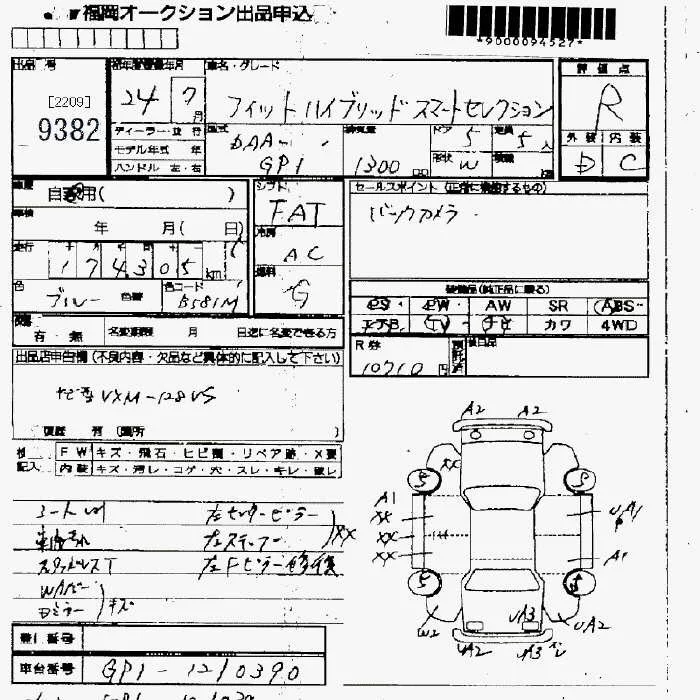 福岡オークション出品申込
*9000094527*
出品 号
[2209]
9382
初年度登録年月
24 7月
車名・グレード
フィットハイブリッド スマートセレクション
評価点
R
外装 内装
D C
ディーラー・並行
モデル年式 年
ハンドル 左・右
型式
DAA-
GP1
排気量
1300
ドア 5
形状 W
定員 5人
車歴
自家用( )
車検
年 月( 日)
走行
174305km
色
ブルー
色替
色コード
B581M
シフト
FAT
冷房
AC
燃料
G
セールスポイント (正常に機能するもの)
バックカメラ
装備品(純正品に限る)
PS PW AW SR ABS
エアB TV ナビ カワ 4WD
有・無 名変期限 月 日迄に名変できる方
R券
10710円
預託済
後日品
出品店申告欄 (不良内容・欠品など具体的に記入して下さい)
ナビ型 VXM-128VS
修復歴 有 (箇所 )
検
記入
FW キズ・飛石・ヒビ割・リペア跡・X要
内装 キズ・汚レ・コゲ・穴・スレ・キレ・破レ
左センターピラー
左ステップ
XX
スタッドレスT
左Fピラー修復
Wバンパー
Dミラー
キズ
A2 A2
XX
S S
A1
XX
XX
XX
UA1
A1
S
W2
UA2
UA3
UA2
UA3
登録番号
車台番号
GP1-1210390